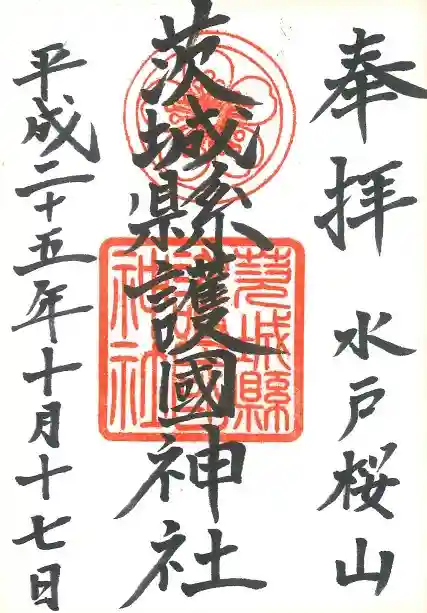 奉拝
水戸桜山
茨城縣護國神社
茨城縣護國神社
平成二十五年十月十七日